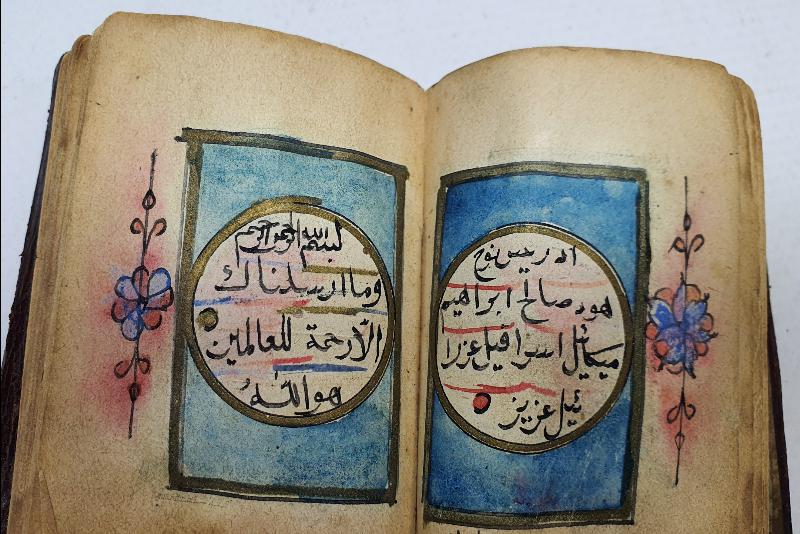 ادريس نوح
هود صالح ابراهيم
ميكائيل اسرافيل عزرا
ئيل عزيز
بسم الله الرحمن الرحيم
وما ارسلناك
الا رحمة للعالمين
هو الله